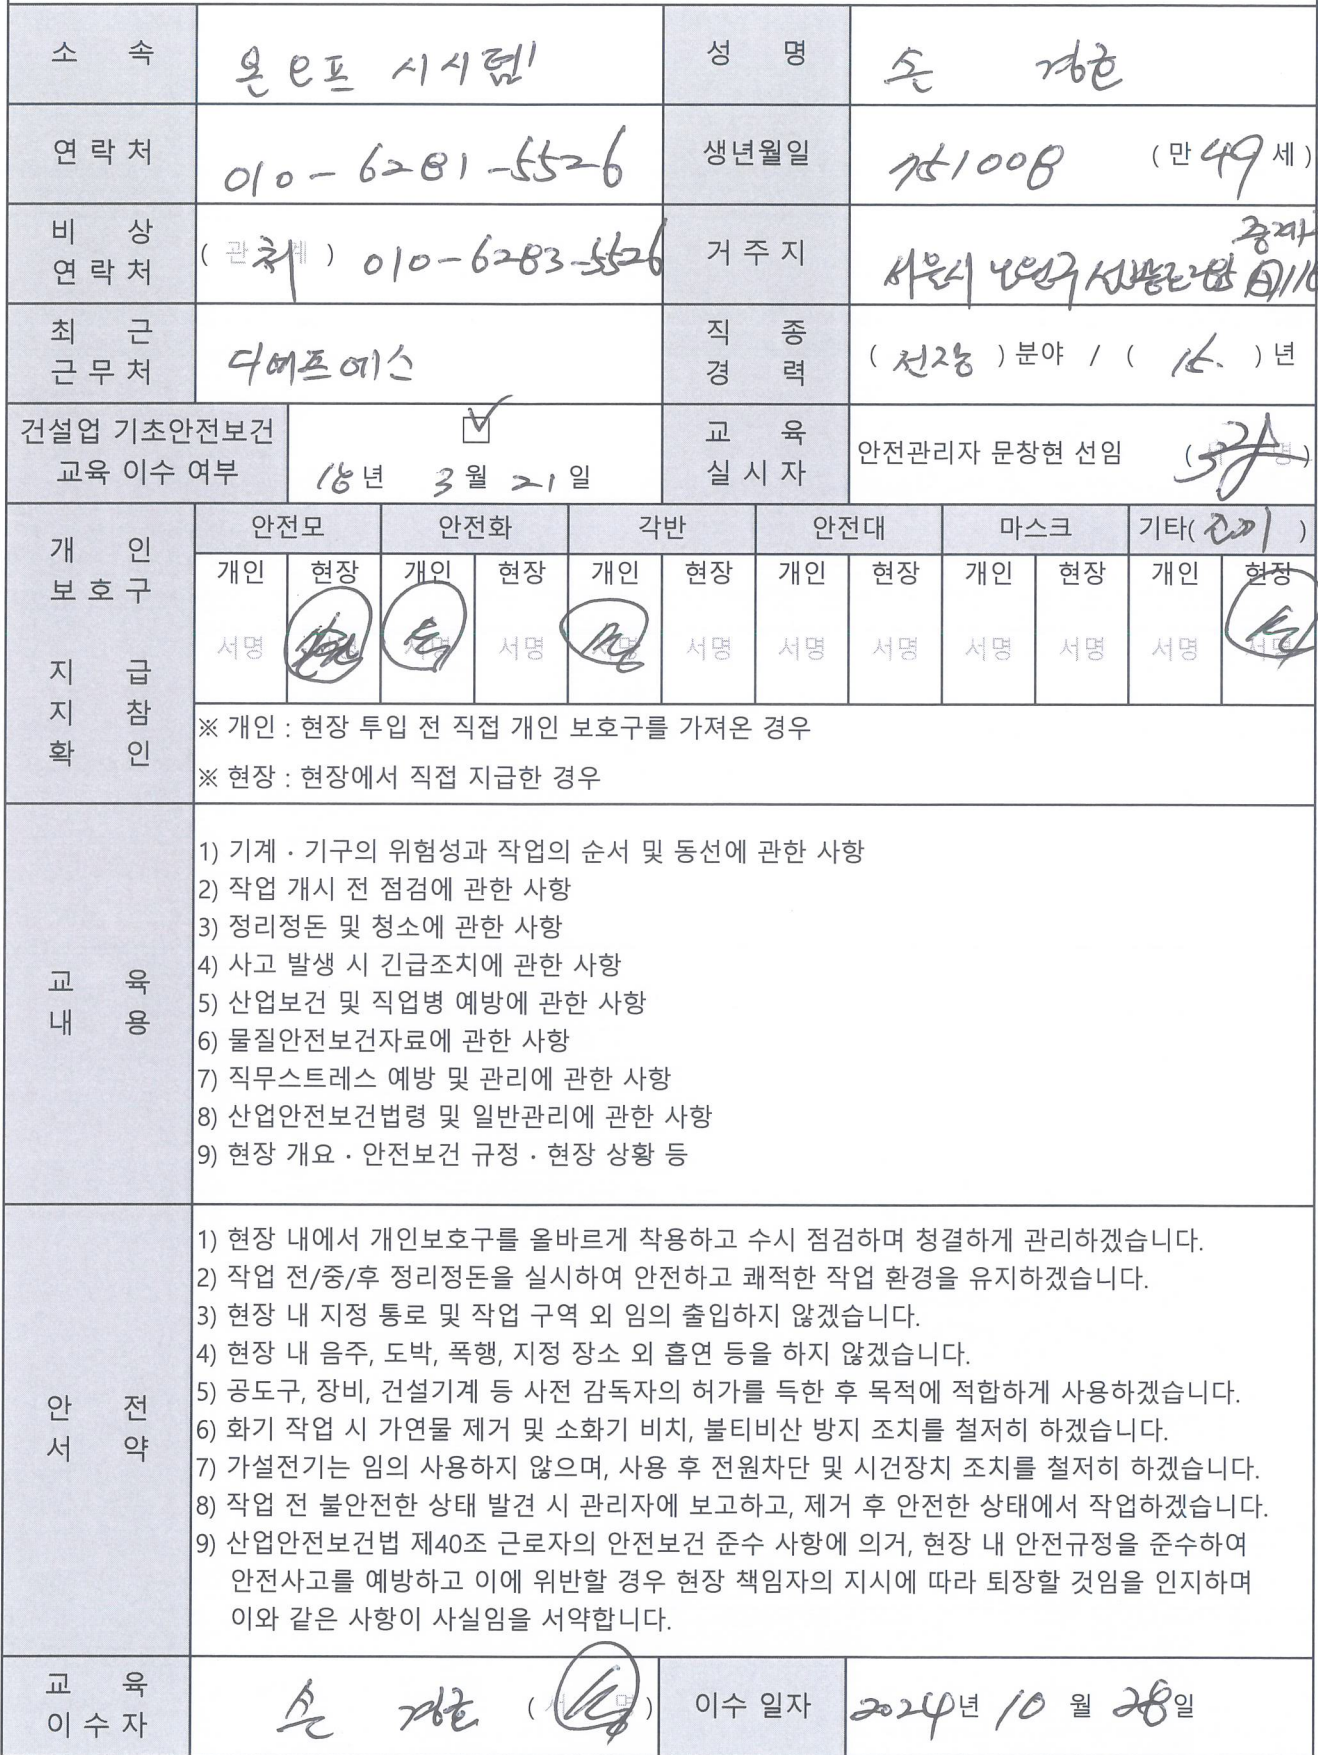 소 속 온오프 시시템 성 명 손 경훈
연 락 처 010-6281-5526 생년월일 751008 (만 49 세)
비 상 연 락 처 (관 처 계) 010-6283-5526 거 주 지 서울시 노원구
최 근 근 무 처 디에프에스 직 종 경 력 (전장) 분야 / (15.) 년
건설업 기초안전보건 교육 이수 여부 ☑ 18년 3월 21일 교 육 실 시 자 안전관리자 문창현 선임 (서명)
개 인 보 호 구 지 급 지 참 확 인
안전모 안전화 각반 안전대 마스크 기타(조끼)
개인 현장 개인 현장 개인 현장 개인 현장 개인 현장 개인 현장
서명 서명 서명 서명 서명 서명 서명 서명 서명 서명
※ 개인 : 현장 투입 전 직접 개인 보호구를 가져온 경우
※ 현장 : 현장에서 직접 지급한 경우
교 육 내 용
1) 기계 · 기구의 위험성과 작업의 순서 및 동선에 관한 사항
2) 작업 개시 전 점검에 관한 사항
3) 정리정돈 및 청소에 관한 사항
4) 사고 발생 시 긴급조치에 관한 사항
5) 산업보건 및 직업병 예방에 관한 사항
6) 물질안전보건자료에 관한 사항
7) 직무스트레스 예방 및 관리에 관한 사항
8) 산업안전보건법령 및 일반관리에 관한 사항
9) 현장 개요 · 안전보건 규정 · 현장 상황 등
안 전 서 약
1) 현장 내에서 개인보호구를 올바르게 착용하고 수시 점검하며 청결하게 관리하겠습니다.
2) 작업 전/중/후 정리정돈을 실시하여 안전하고 쾌적한 작업 환경을 유지하겠습니다.
3) 현장 내 지정 통로 및 작업 구역 외 임의 출입하지 않겠습니다.
4) 현장 내 음주, 도박, 폭행, 지정 장소 외 흡연 등을 하지 않겠습니다.
5) 공도구, 장비, 건설기계 등 사전 감독자의 허가를 득한 후 목적에 적합하게 사용하겠습니다.
6) 화기 작업 시 가연물 제거 및 소화기 비치, 불티비산 방지 조치를 철저히 하겠습니다.
7) 가설전기는 임의 사용하지 않으며, 사용 후 전원차단 및 시건장치 조치를 철저히 하겠습니다.
8) 작업 전 불안전한 상태 발견 시 관리자에 보고하고, 제거 후 안전한 상태에서 작업하겠습니다.
9) 산업안전보건법 제40조 근로자의 안전보건 준수 사항에 의거, 현장 내 안전규정을 준수하여
안전사고를 예방하고 이에 위반할 경우 현장 책임자의 지시에 따라 퇴장할 것임을 인지하며
이와 같은 사항이 사실임을 서약합니다.
교 육 이 수 자 손 경훈 (서명) 이수 일자 2024년 10 월 28일